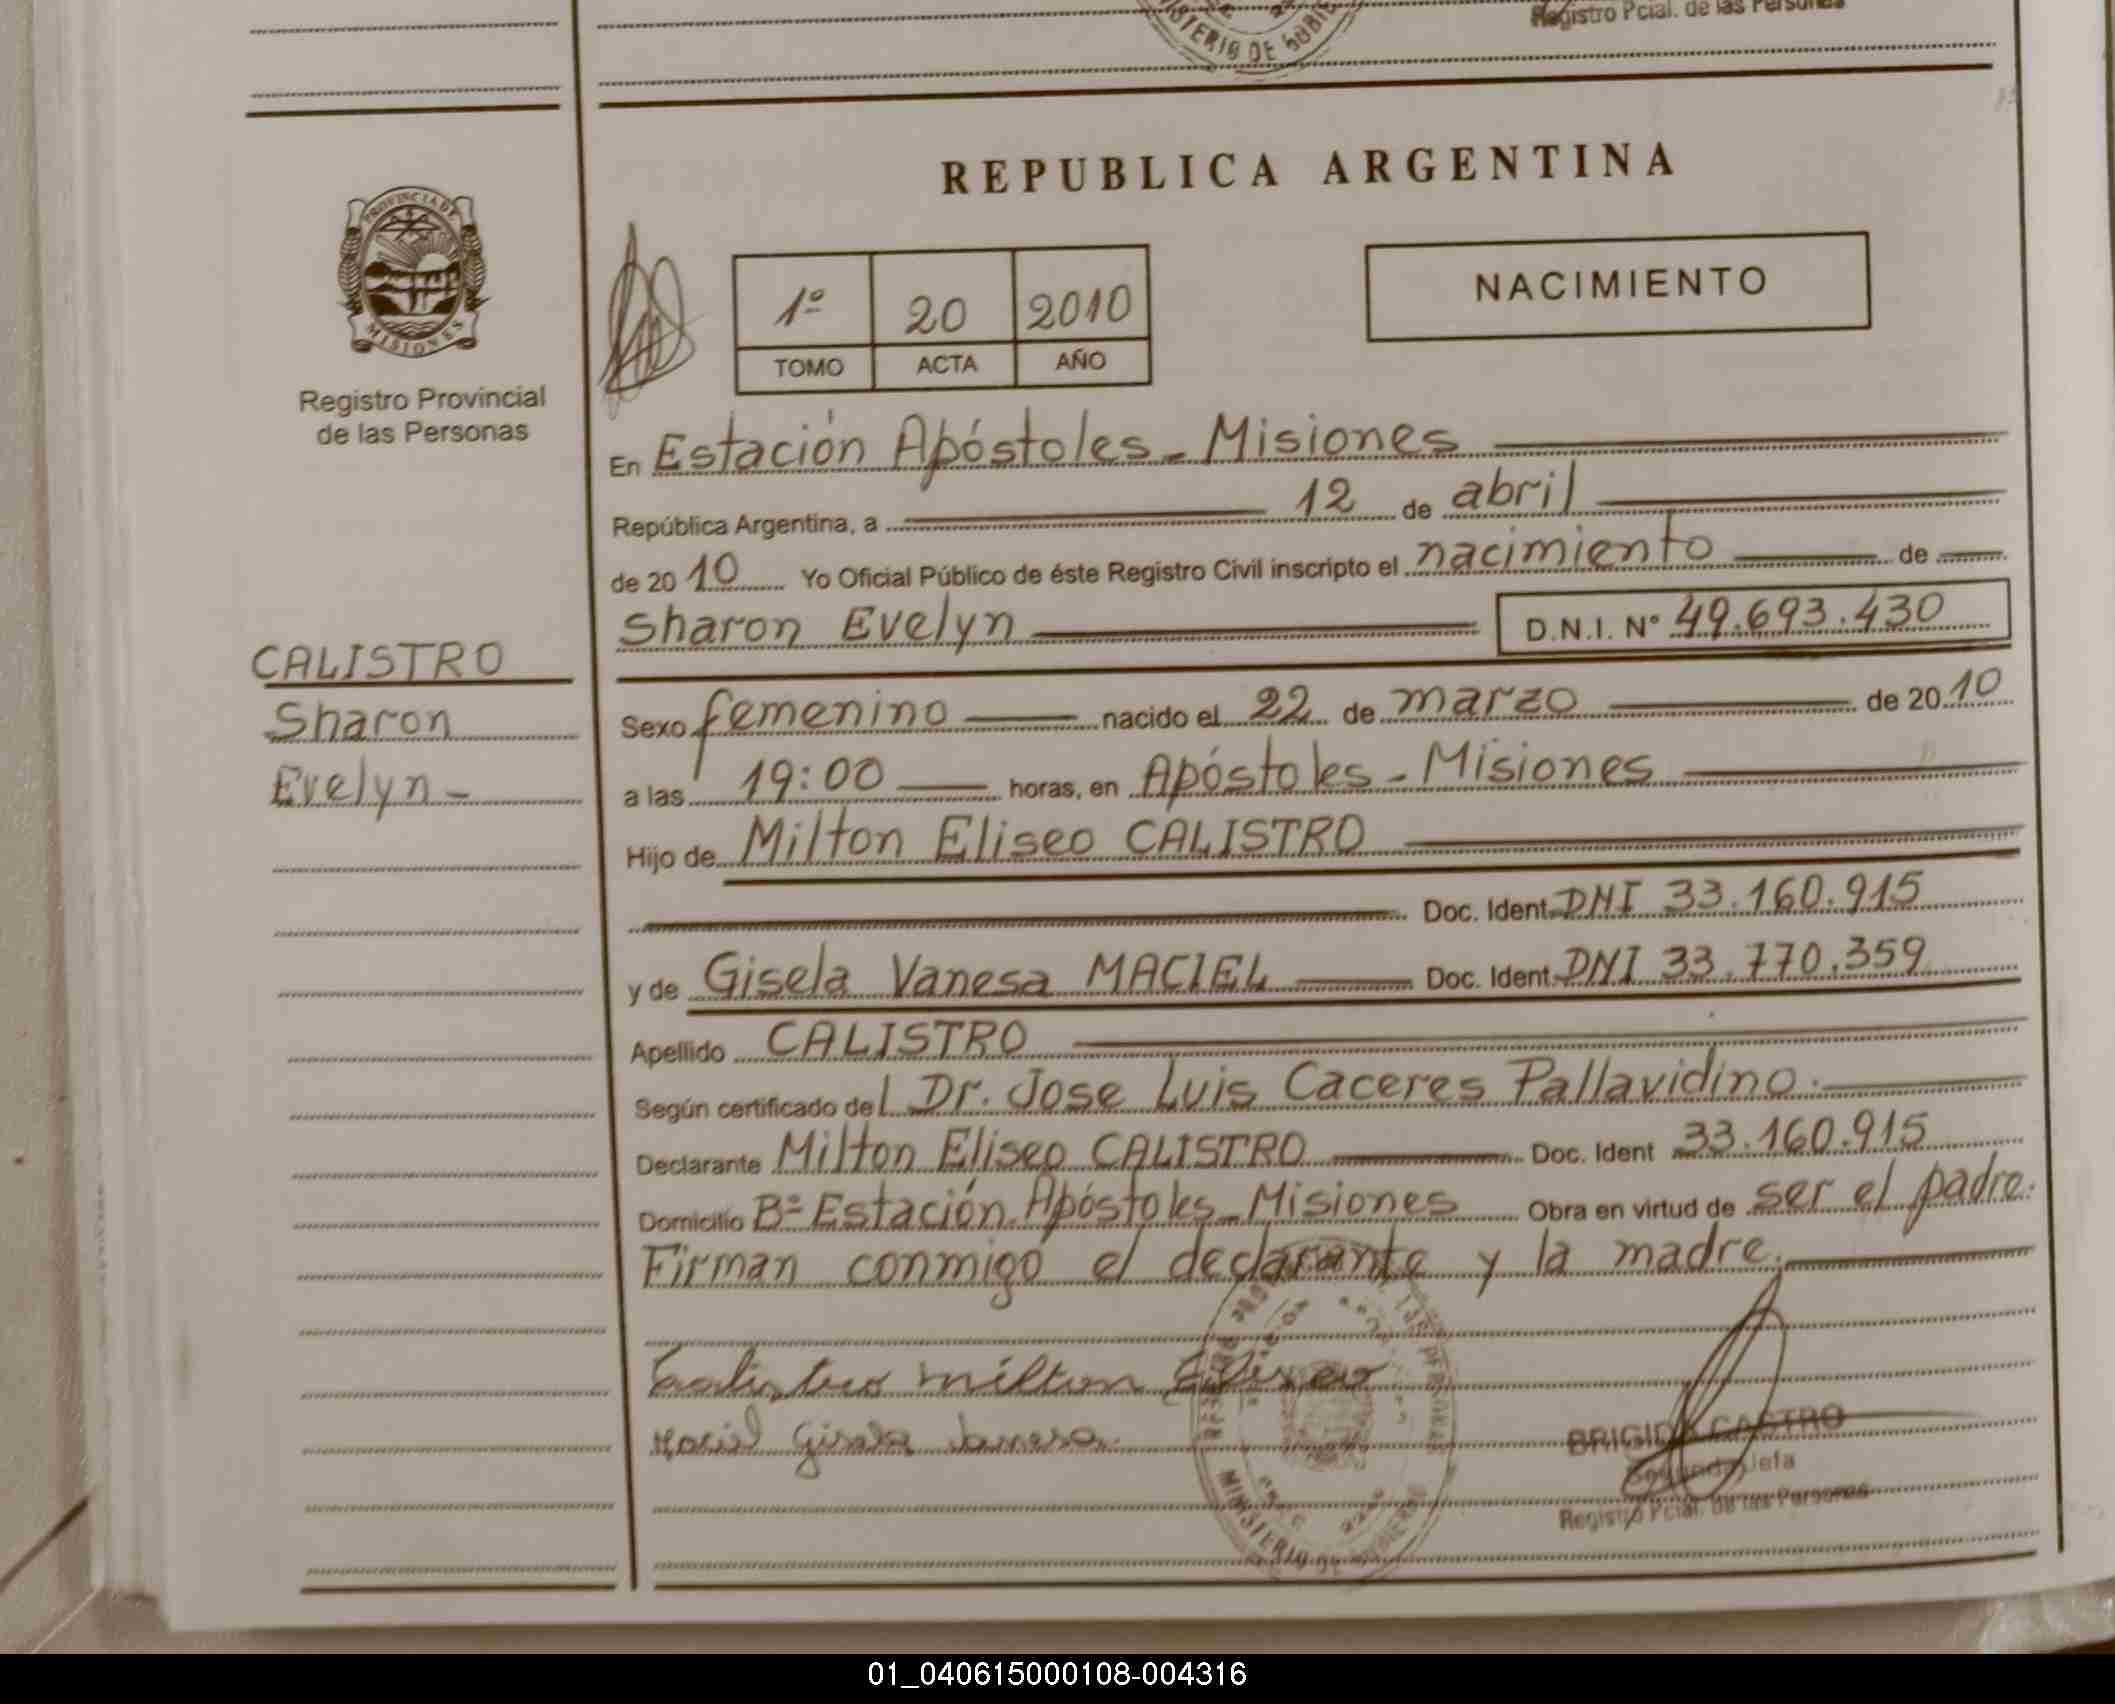 Registro Pcial. de las Personas
MINISTERIO DE GOBIERNO
REPUBLICA ARGENTINA
PROVINCIA DE
MISIONES
Registro Provincial
de las Personas
1º 20 2010
TOMO ACTA AÑO
NACIMIENTO
En Estación Apóstoles - Misiones
República Argentina, a 12 de abril
de 2010 Yo Oficial Público de éste Registro Civil inscripto el nacimiento de
Sharon Evelyn D.N.I. Nº 49.693.430
CALISTRO
Sharon
Evelyn -
Sexo femenino nacido el 22 de marzo de 2010
a las 19:00 horas, en Apóstoles - Misiones
Hijo de Milton Eliseo CALISTRO
Doc. Ident. DNI 33.160.915
y de Gisela Vanesa MACIEL Doc. Ident. DNI 33.770.359
Apellido CALISTRO
Según certificado del Dr. Jose Luis Caceres Pallavidino.
Declarante Milton Eliseo CALISTRO Doc. Ident 33.160.915
Domicilio Bº Estación Apóstoles - Misiones Obra en virtud de ser el padre.
Firman conmigo el declarante y la madre.
Calistro Milton Eliseo
Maciel Gisela Vanesa
MINISTERIO DE GOBIERNO
BRIGIDA CASTRO
Segunda Jefa
Registro Pcial. de las Personas
01_040615000108-004316